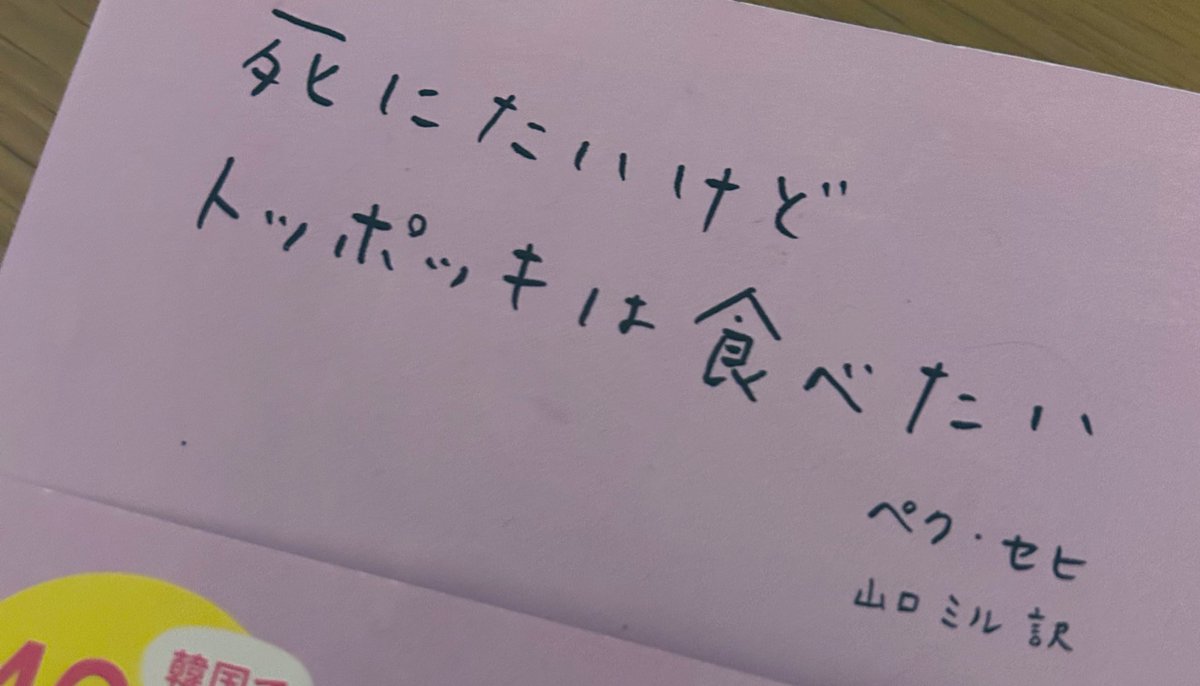 死にたいけど
トッポッキは食べたい
ペク・セヒ
山口ミル 訳
韓国で